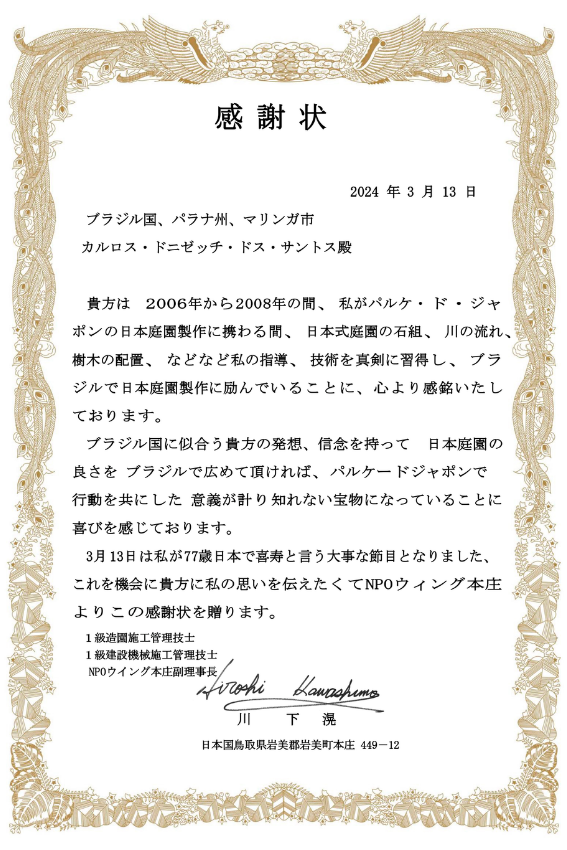 感謝状
2024 年 3 月 13 日
ブラジル国、パラナ州、マリンガ市
カルロス・ドニゼッチ・ドス・サントス殿
貴方は 2006年から2008年の間、私がパルケ・ド・ジャ
ポンの日本庭園製作に携わる間、日本式庭園の石組、川の流れ、
樹木の配置、などなど私の指導、技術を真剣に習得し、ブラ
ジルで日本庭園製作に励んでいることに、心より感銘いたし
ております。
ブラジル国に似合う貴方の発想、信念を持って 日本庭園の
良さを ブラジルで広めて頂ければ、パルケードジャポンで
行動を共にした 意義が計り知れない宝物になっていることに
喜びを感じております。
3月13日は私が77歳日本で喜寿と言う大事な節目となりました、
これを機会に貴方に私の思いを伝えたくてNPOウィング本庄
よりこの感謝状を贈ります。
1級造園施工管理技士
1級建設機械施工管理技士
NPOウイング本庄副理事長
Hiroshi Kawashimo
川 下 滉
日本国鳥取県岩美郡岩美町本庄 449－12